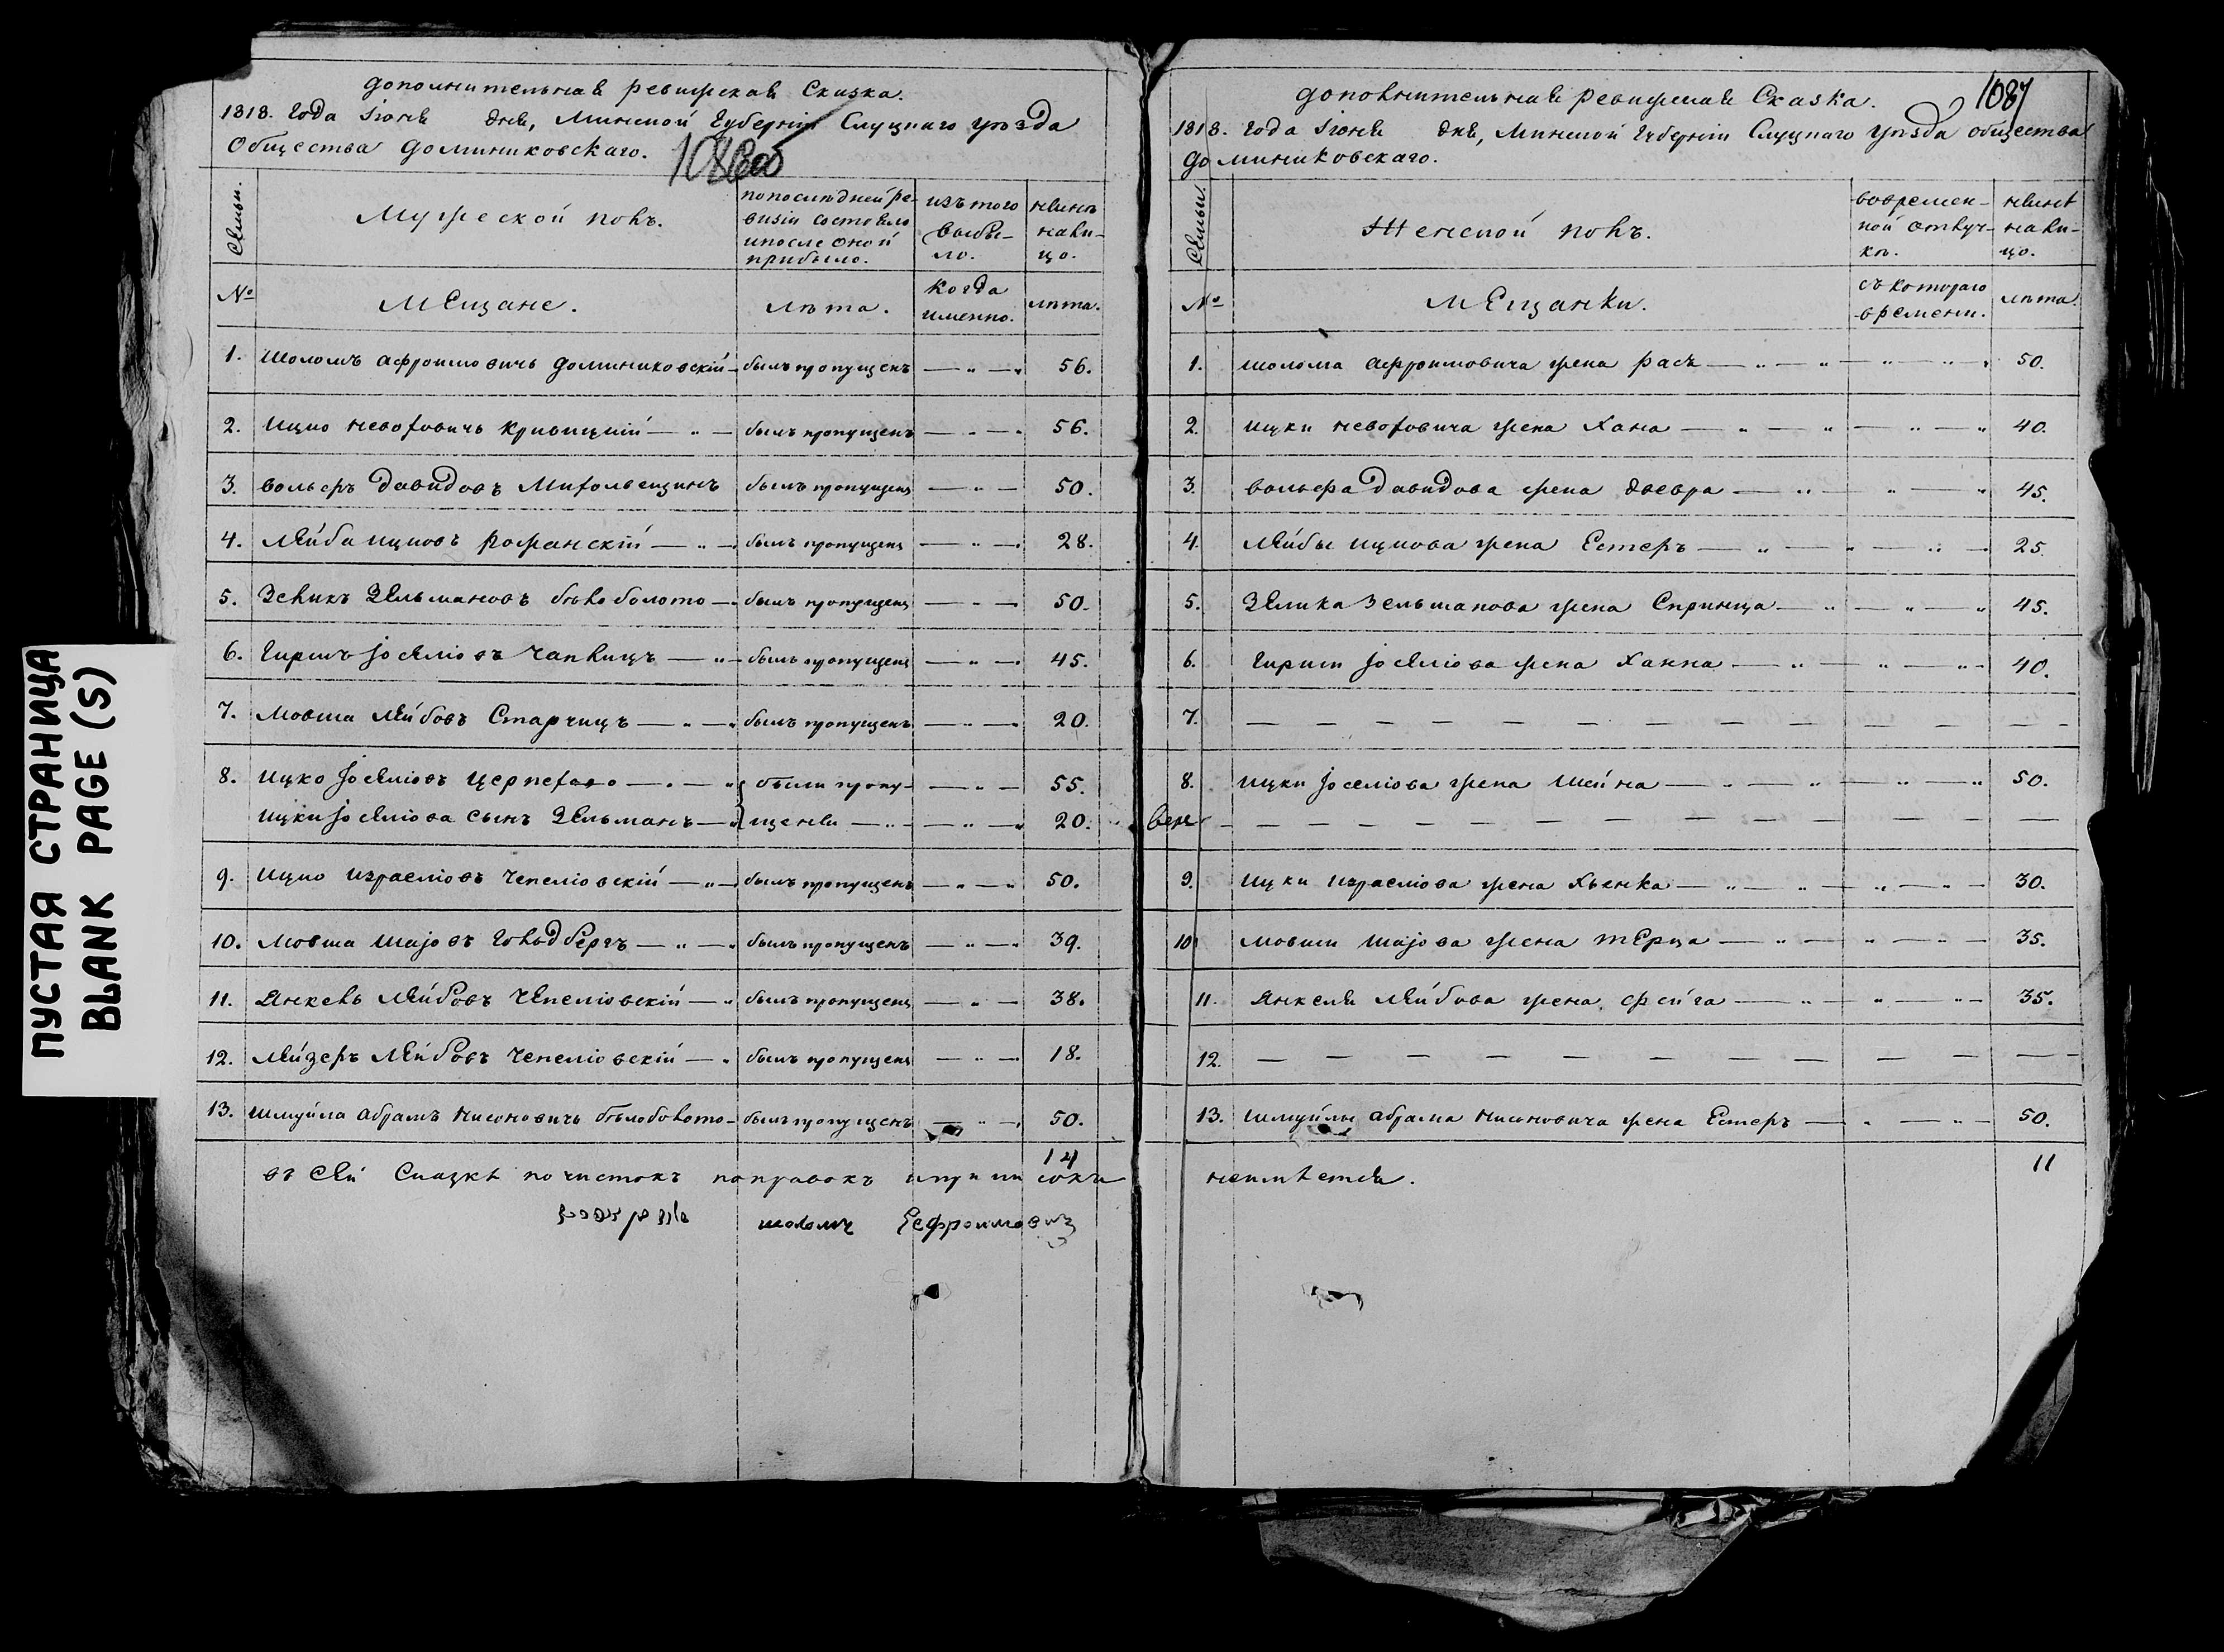 ПУСТАЯ СТРАНИЦА
BLANK PAGE (S)
дополнительная ревижская Сказка.
1818. года Iюня дня, Минской Губернiи Слуцкаго уѣзда
Общества доминиковскаго.
1086об
Семьи.
Мужеской полъ.
попослѣдней ре-
визiи состояло
ипосле оной
прибыло.
изътого
выбы-
ло.
нынѣ
нали-
цо.
№
Мещане.
лѣта.
когда
именно.
лѣта.
1. Шоломъ афроимовичь доминиковскiй былъ пропущенъ — " — " 56.
2. Ицко Кривицкiй — " — былъ пропущенъ — " — " 56.
3. вольфъ давидовъ былъ пропущенъ — " — 50.
4. Лейба ицковъ рожанскiй — " — былъ пропущенъ — " — 28.
5. Зеликъ Зельмановъ бѣлоболото — былъ пропущенъ — " — 50.
6. Гиршъ Jоселiовъ Чаплицъ — " — былъ пропущенъ — " — 45.
7. Мовша Лейбовъ Старчицъ — " — " былъ пропущенъ — " — " 20.
8. Ицко Jоселiовъ — " — " были пропу- — " — 55.
ицки Jоселiова сынъ Зельманъ — " щены — " — — " — " 20.
9. Ицко израелiовъ чепелiовскiй — " — былъ пропущенъ — " — " 50.
10. Мовша Шаjовъ Гольдбергъ — " — " былъ пропущенъ — " — " 39.
11. Янкель Лейбовъ Чепелiовскiй — " былъ пропущенъ — " — 38.
12. Лейзеръ Лейбовъ Чепелiовскiй — " былъ пропущенъ — " — 18.
13. Шмуйла абрамъ нисоновичь бѣлоболото — былъ пропущенъ — " — 50.
14
въ сей Сказкѣ почистокъ поправокъ иприписокъ
шоломъ Ефроимовичъ
1087
дополнительная ревижская Сказка.
1818. года Iюня дня, Минской Губернiи Слуцкаго уѣзда общества
доминиковскаго.
Семьи.
Женской полъ.
вовремен-
ной отлуч-
кѣ.
нынѣ
нали-
цо.
№
Мещанки.
съ котораго
времени.
лѣта.
1. шолома афроимовича жена — " — " — " — " — " 50.
2. ицки жена Хана — " — " — " — " 40.
3. вольфа давидова жена двевра — " — " — " 45.
4. Лейбы ицкова жена Естеръ — " — " — " — 25.
5. Зелика Зельманова жена Спринца — " — " — " 45.
6. Гирши Jоселiова жена Ханна — " — " — " — 40.
7. — — — — — — — — — — — — —
8. ицки Jоселiова жена Шейна — " — " — " — " 50.
— — — — — — — — — — — — —
9. ицки израелiова жена Хьенка — " — " — " — " — 30.
10. мовши Шаjова жена тЕрца — " — " — " — 35.
11. Янкеля Лейбова жена фейга — " — " — " — 35.
12. — — — — — — — — — — — — —
13. шмуйлы абрама нисоновича жена Естеръ — " — " — 50.
11
неимѣется.